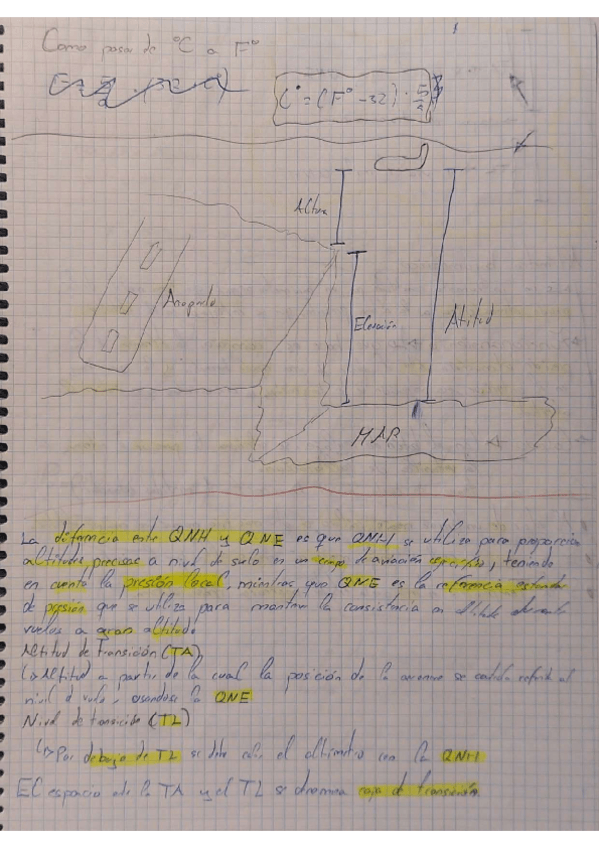 Como pasar de °C a F°
C° = (F° - 32) · 5/9
Altura
Aeropuerto
Elevación
Atitud
MAR
La diferencia entre QNH y QNE es que QNH se utiliza para proporcion
altitudes precisas a nivel de suelo en un campo de aviación específico, teniendo
en cuenta la presión local, mientras que QNE es la referencia estandar
de presión que se utiliza para mantener la consistencia en altitudes durante
vuelos a gran altitud.
Altitud de Transición (TA)
↳ Altitud a partir de la cual la posición de la aeronave se
nivel d vuelo, usandose la QNE
Nivel de transición (TL)
↳ Por debajo de TL se debe calar el altimetro con la QNH
El espacio entre la TA y el TL se denomina capa de transición